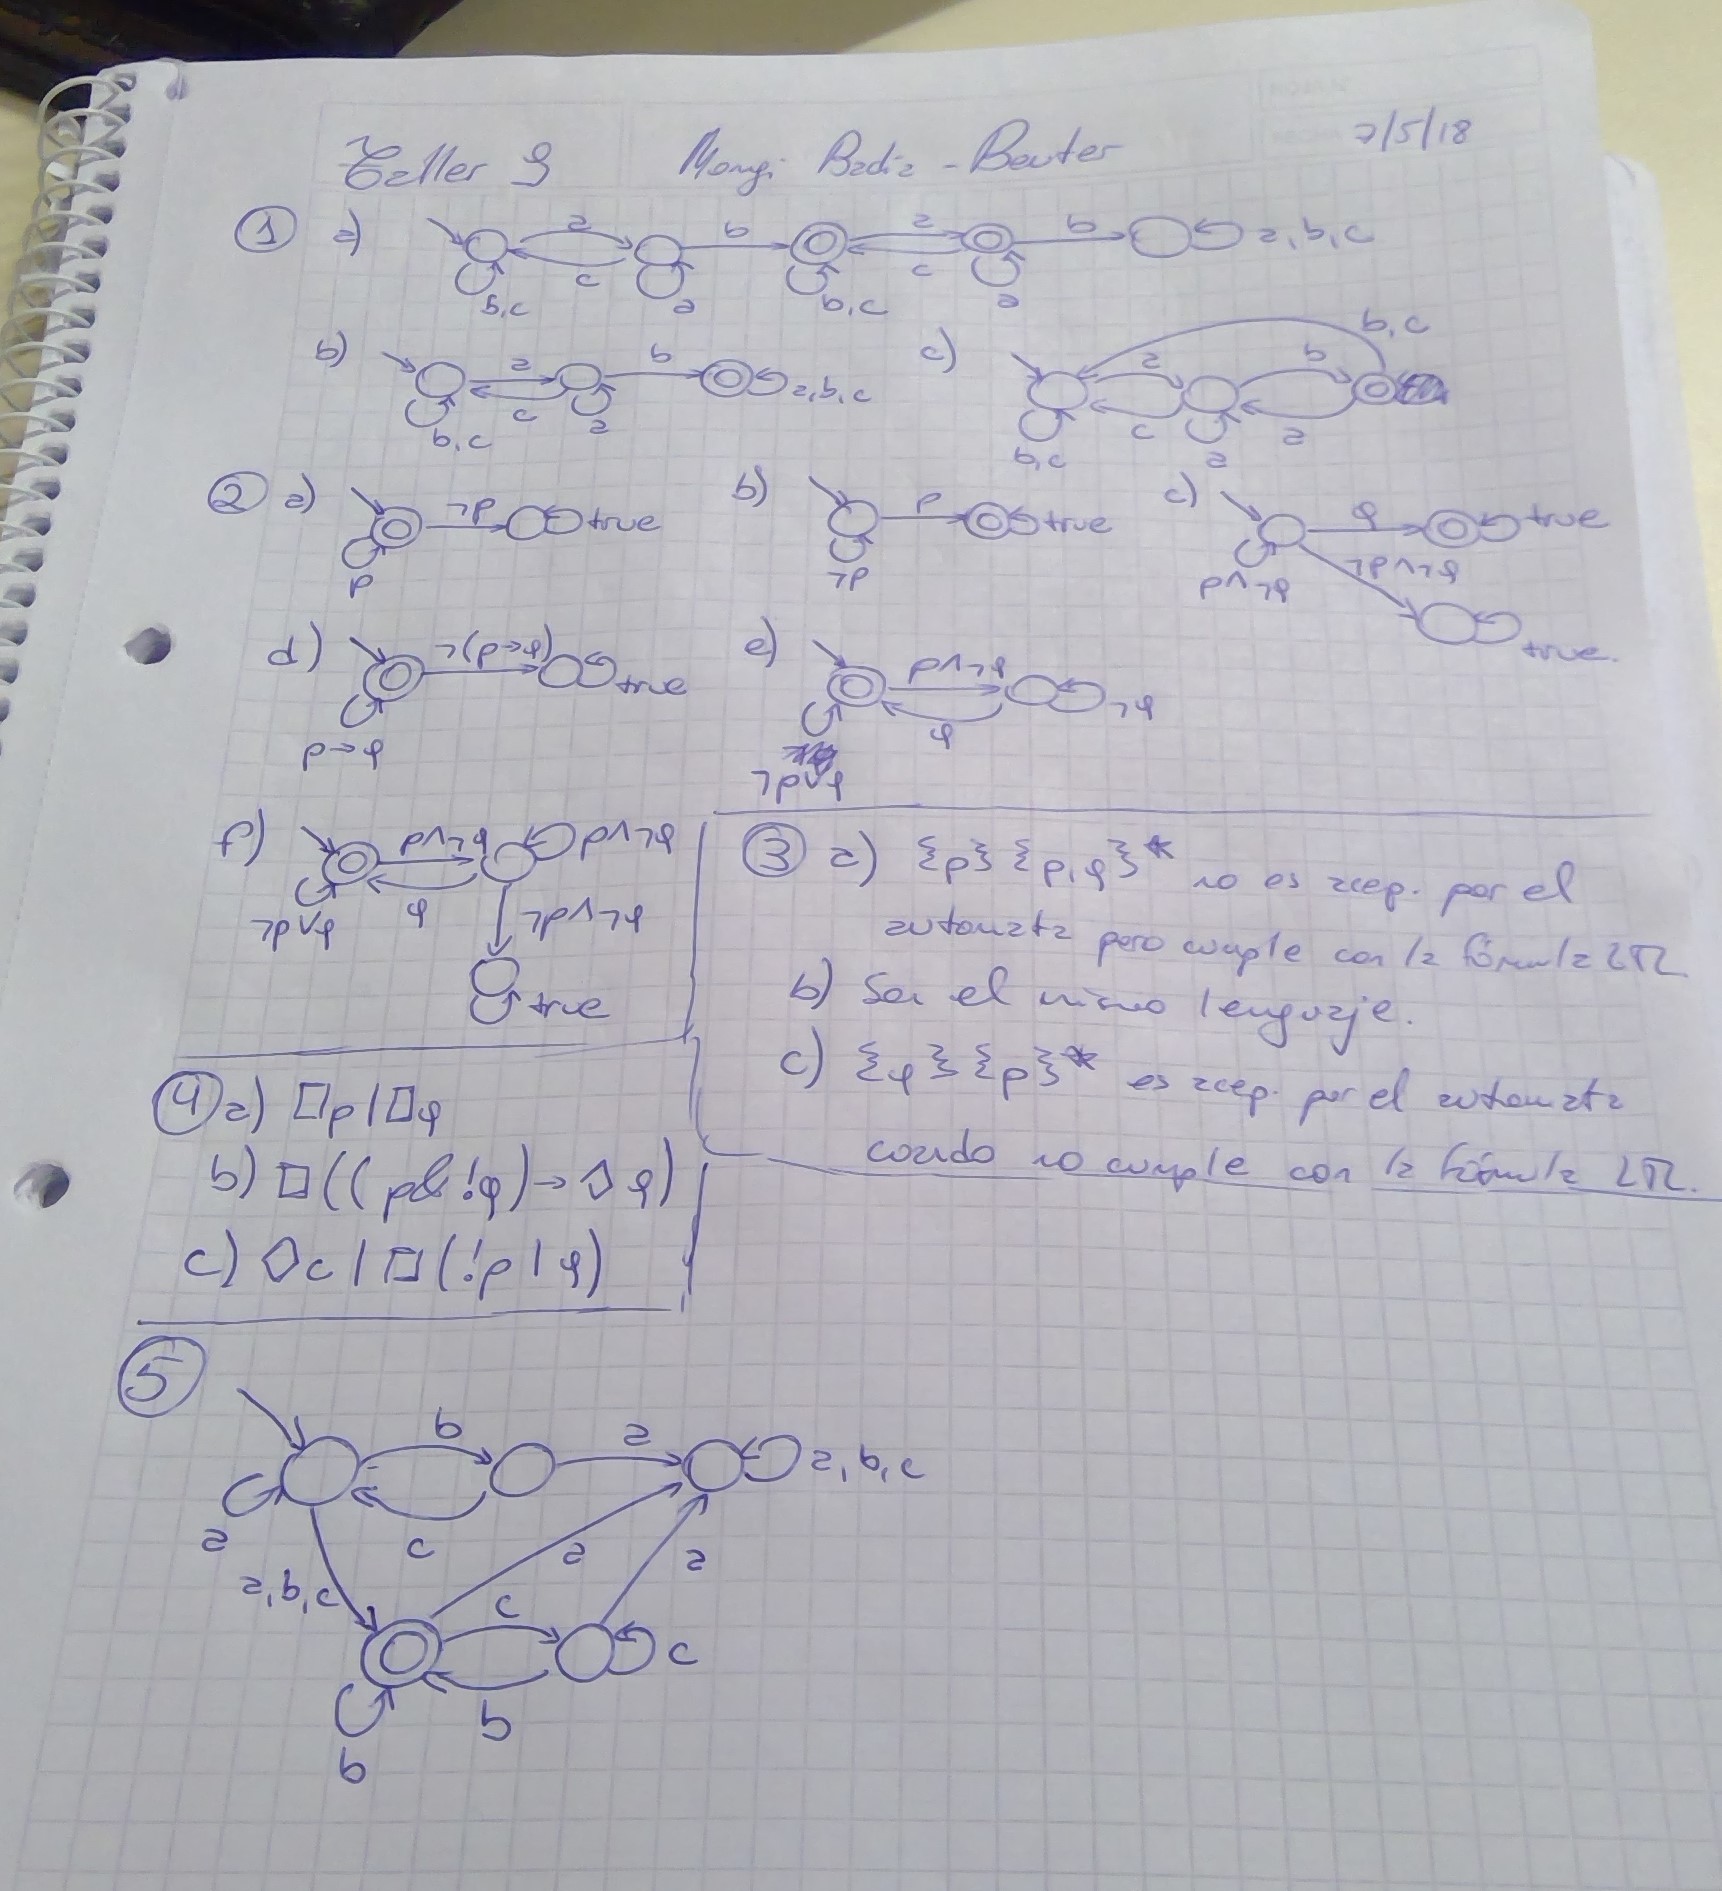 Taller 9 Mongi Badia-Beuter 7/5/18
① a) a b a b a,b,c
c c
b,c a b,c a
b) a b a,b,c c) a b b,c
c c a
b,c a b,c a
② a) ¬p true b) p true c) q true
p ¬p p∧¬q ¬p∧¬q
true.
d) ¬(p→q) true e) p∧¬q ¬q
p→q q
¬p∨q
f) p∧¬q p∧¬q
¬p∨q q ¬p∧¬q
true
③ a) {p}{p,q}* no es acep. por el
automata pero cumple con la fórmula LTL
b) Son el mismo lenguaje.
c) {q}{p}* es acep. por el automata
cuando no cumple con la fórmula LTL.
④ a) □p|□q
b) □((p&!q)→◇q)
c) ◇c|□(!p|q)
⑤
b a a,b,c
a c
a,b,c a a
c c
b
b